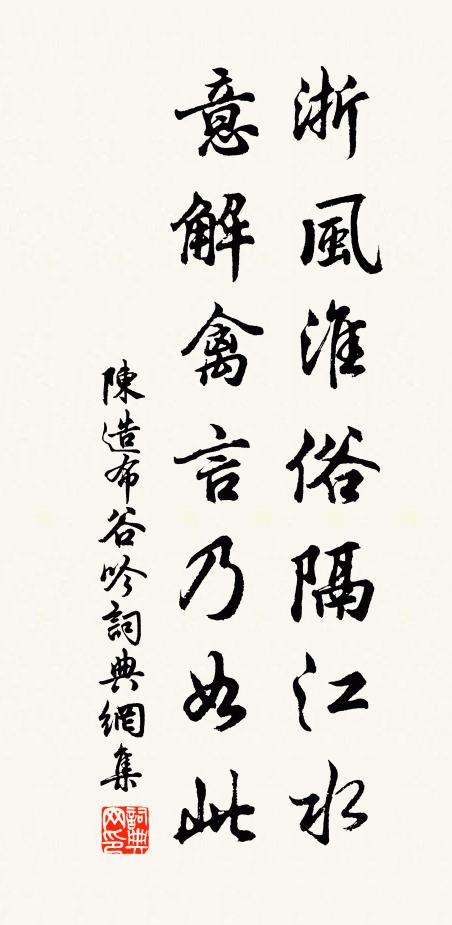 浙風淮俗隔江水
意解禽言乃如此
陳造布谷吟詞典網集
詞典網印